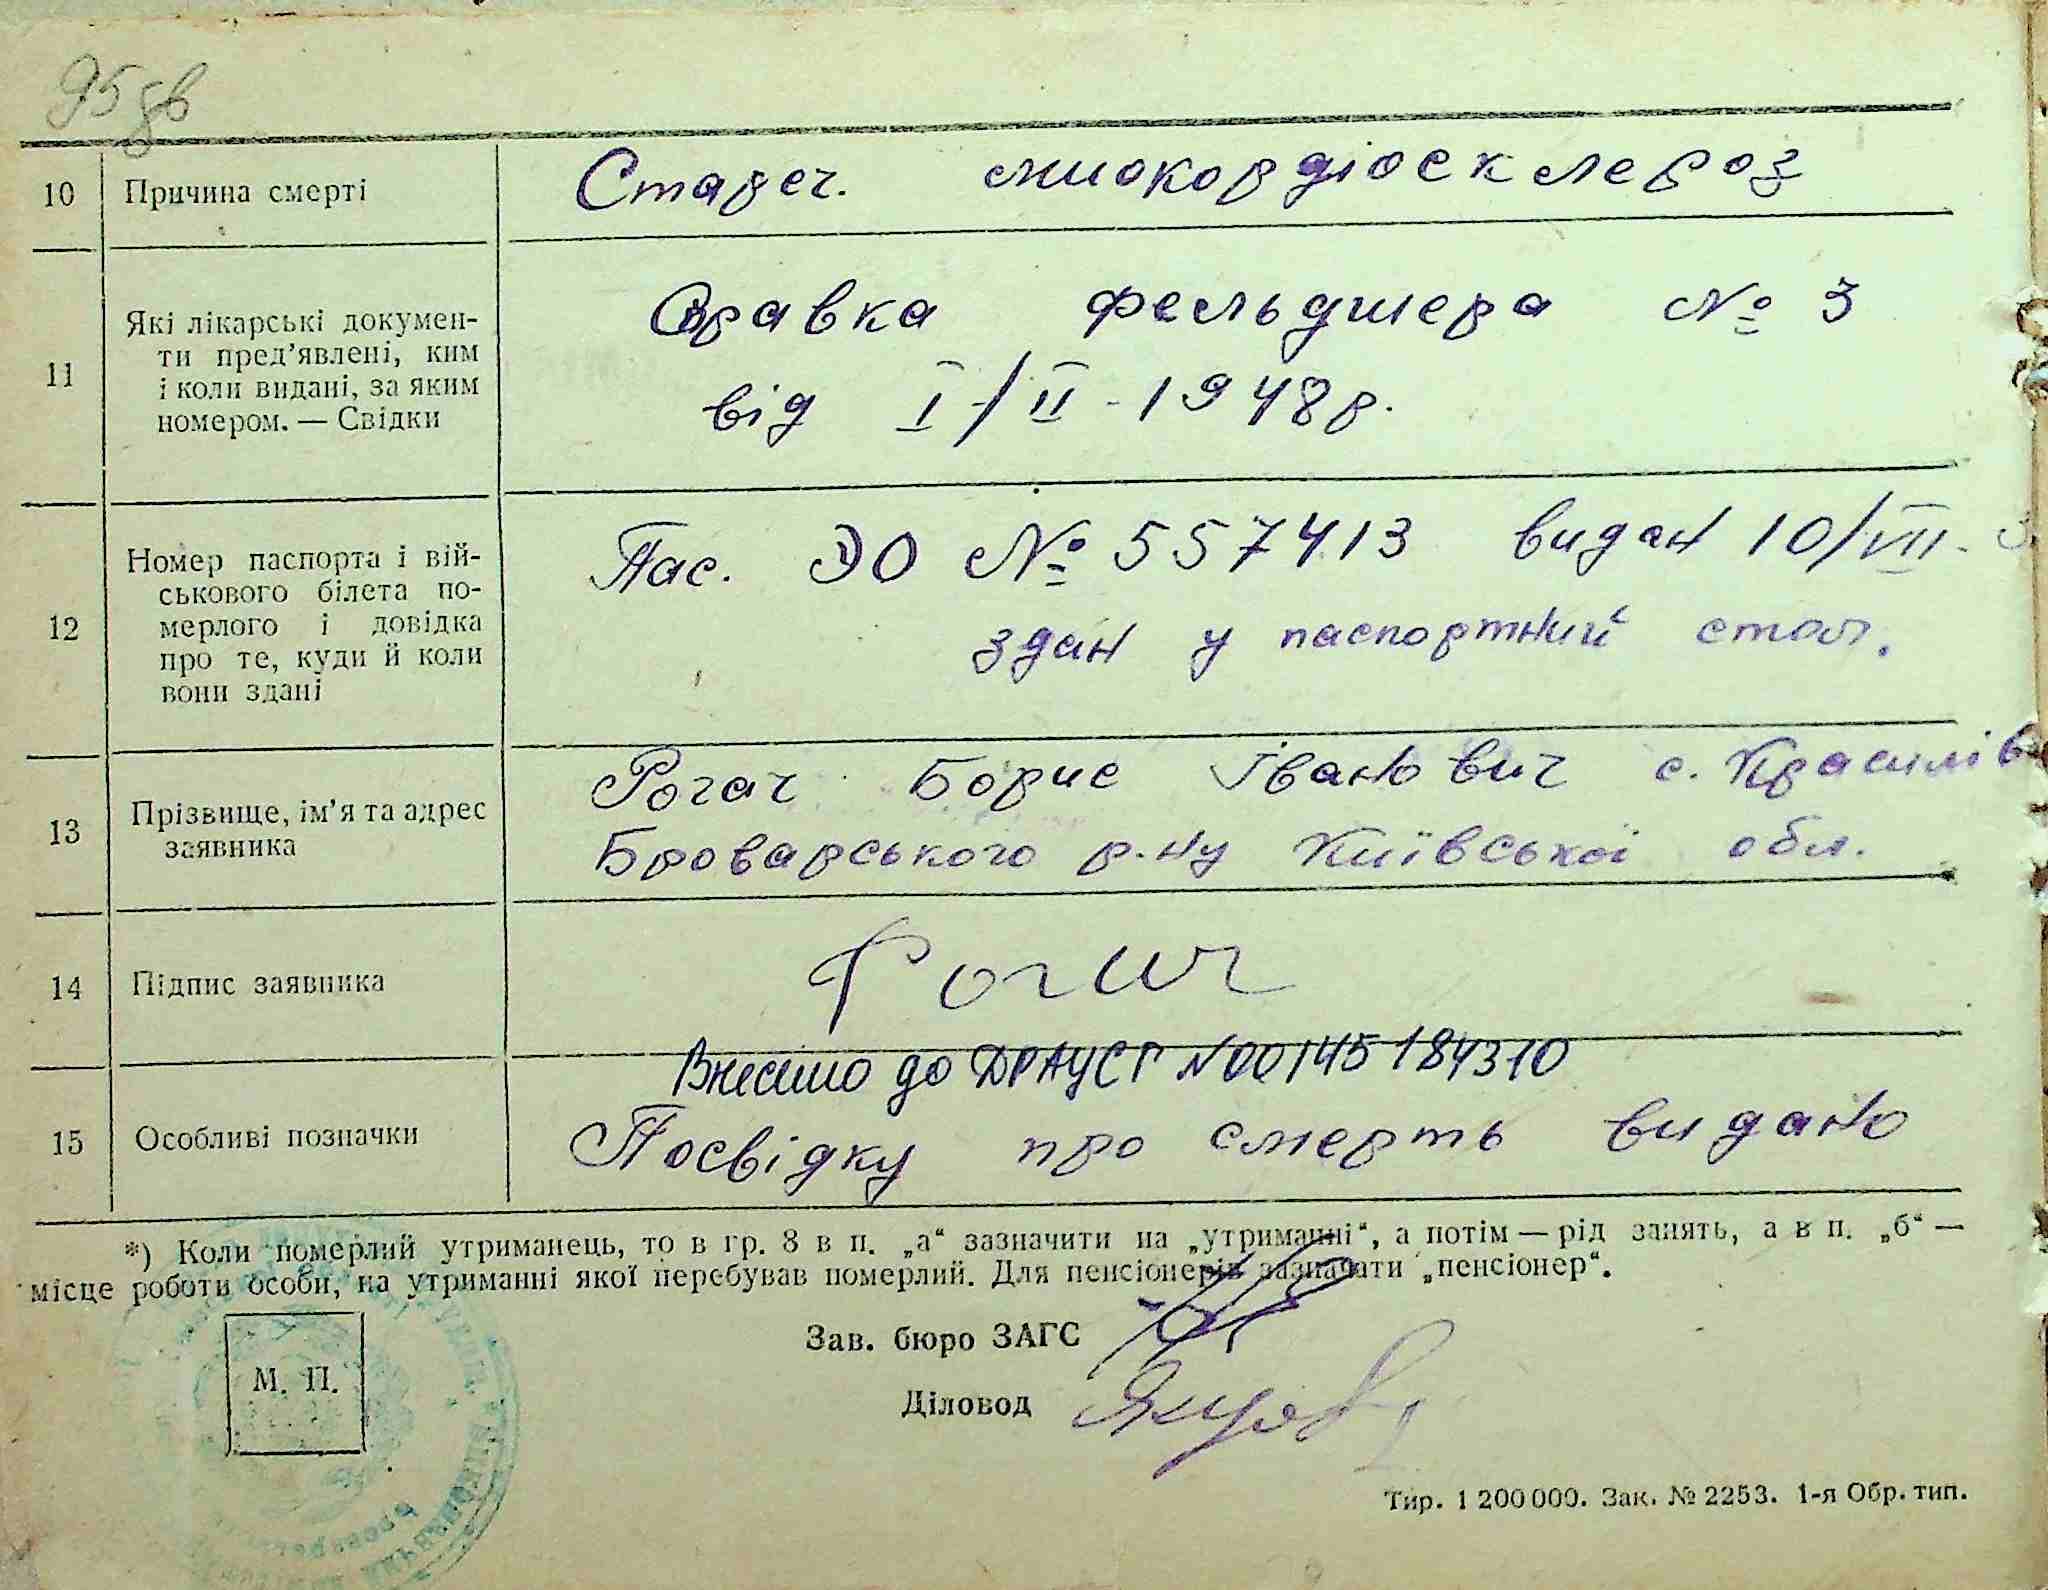 95 зв
10 Причина смерті Стареч. миокордіосклероз
11 Які лікарські докумен-
ти пред'явлені, ким
і коли видані, за яким
номером. — Свідки
Справка фельдшера № 3
від I/II - 1948р.
12 Номер паспорта і вій-
ськового білета по-
мерлого і довідка
про те, куди й коли
вони здані
Пас. ЭО № 557413 видан 10/VII -
здан у паспортний стол.
13 Прізвище, ім'я та адрес
заявника
Рогач Борис Іванович с. Красилів
Броварського р-ну Київської обл.
14 Підпис заявника Рогач
15 Особливі позначки
Внесено до ДРАЦСГ №00145184310
Посвідку про смерть видано
*) Коли померлий утриманець, то в гр. 8 в п. „а“ зазначити на „утриманні“, а потім — рід занять, а в п. „б“ —
місце роботи особи, на утриманні якої перебував померлий. Для пенсіонерів зазначати „пенсіонер“.
М. П.
Зав. бюро ЗАГС
Діловод
Тир. 1 200 000. Зак. № 2253. 1-я Обр. тип.